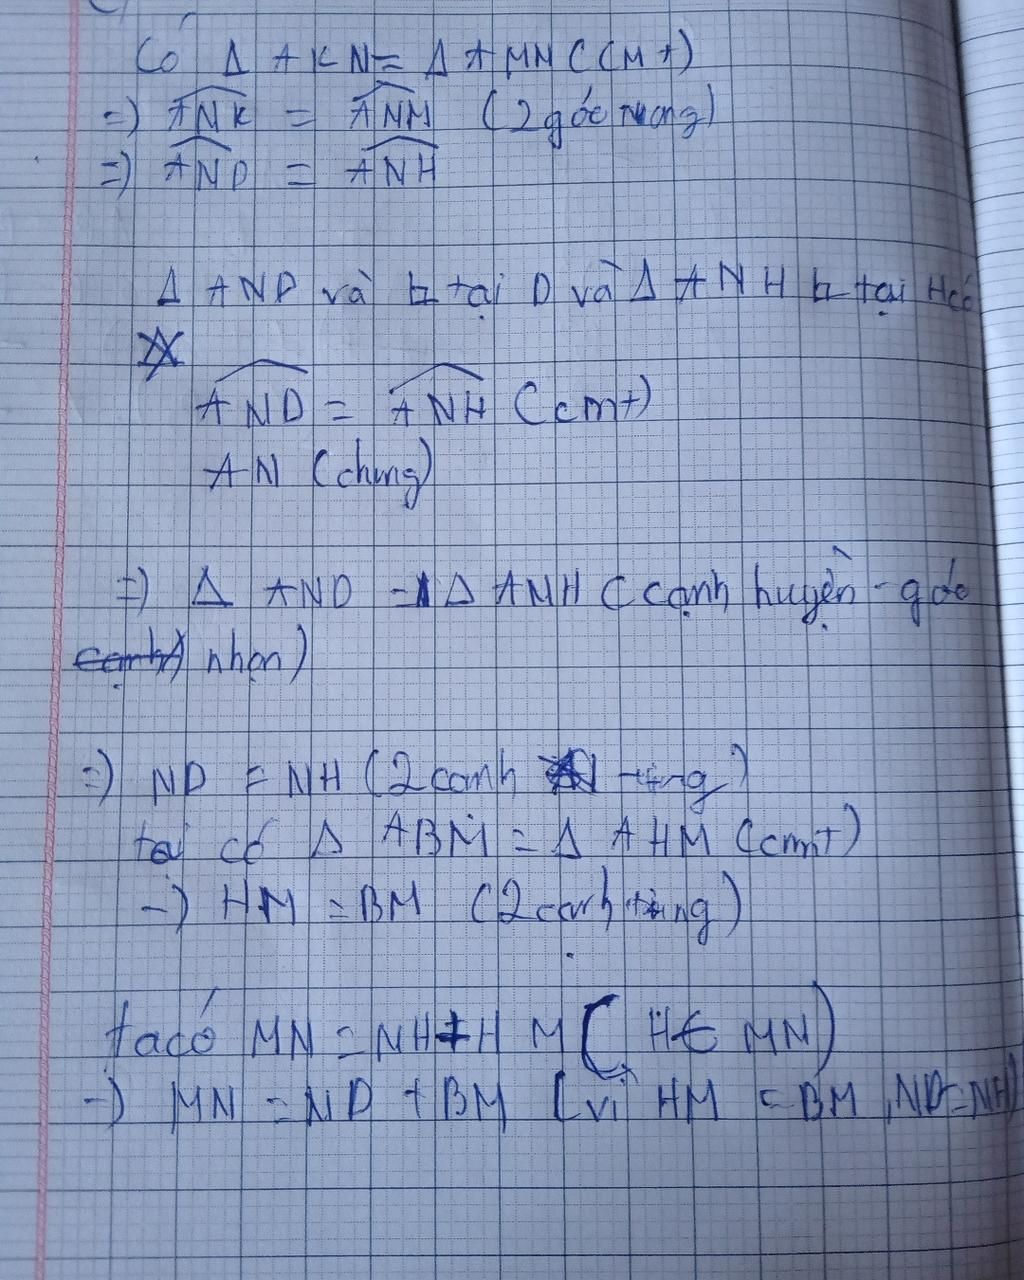 Có Δ AKN = Δ AMN (CMt)
=) ANK = ANM (2 góc tương)
=) AND = ANH
Δ AND và ⊥ tại D và Δ ANH ⊥ tại H có
AND = ANH (cmt)
AN (chung)
=) Δ AND = Δ ANH (cạnh huyền - góc
nhọn)
=) ND = NH (2 cạnh tứng)
ta có Δ ABM = Δ AHM (cmt)
-) HM = BM (2 cạnh tứng)
ta có MN = NH + HM (H∈ MN)
-) MN = ND + BM (vì HM = BM, ND=NH)